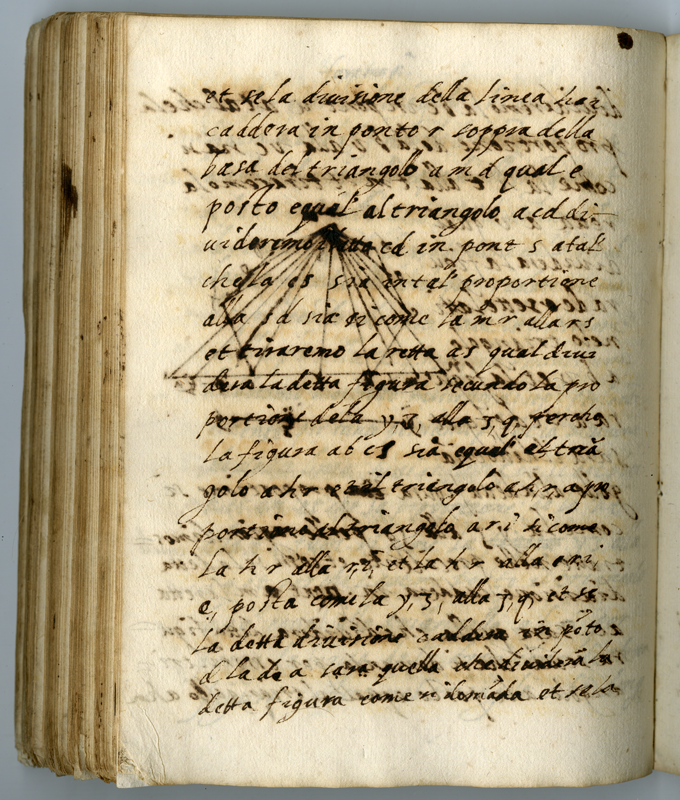 et se la divisione della linea har
caddera in ponto r soppra della
basa del triangolo a m d qual e
posto equal' al triangolo a c d di-
videremo cd in pont s atal'
che la cs sia in tal' proportione
alla s d sia si come la m r alla r s
et tiraremo la retta a s qual divi
dera la detta figura secundo la pro
portione dela y, z, alla z, q, perche
la figura a b c s sia equal' al triã
golo a h r et il triangolo a h r a pro
portione al triangolo a r i si come
la h r alla r i, et la h r alla r i
e, posta come la y, z, alla z, q, et se
la detta divisione caddera in põto
d la d a sara quella che dividera la
detta figura come si domãda et se la